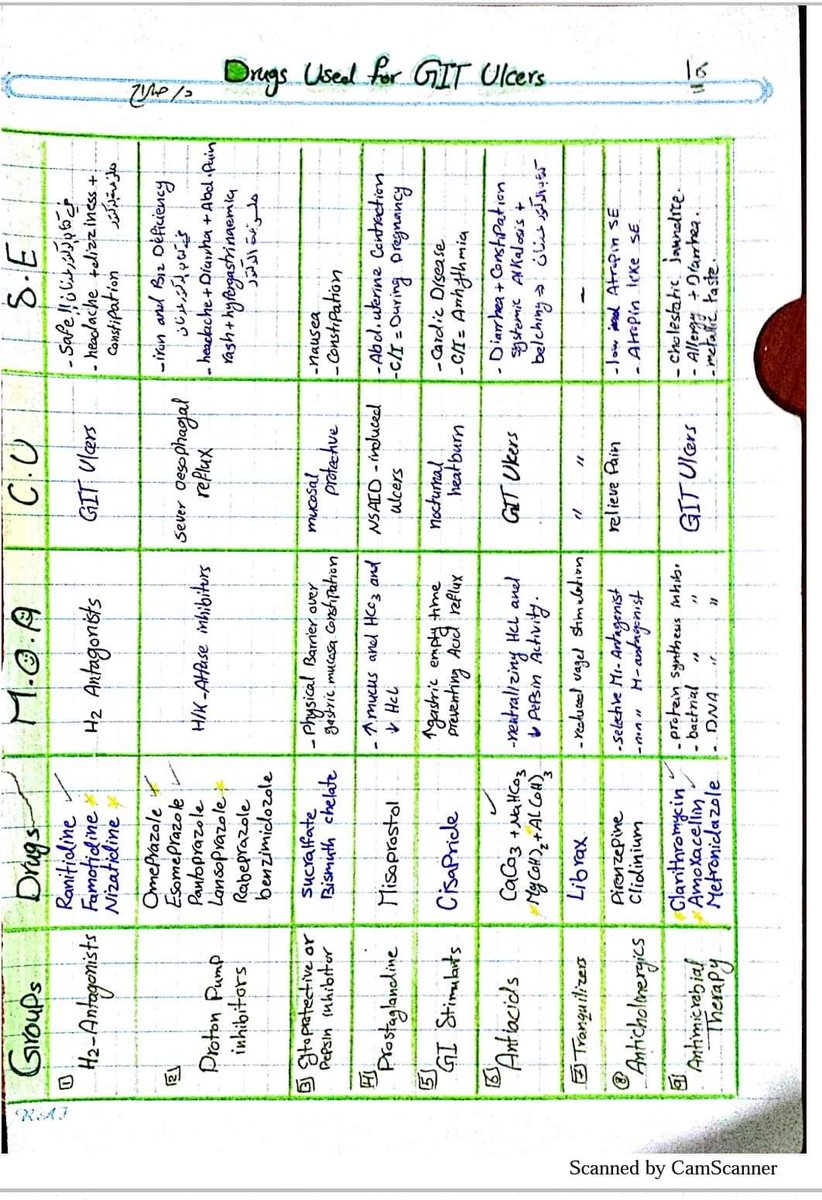 Drugs Used for GIT Ulcers
Groups
Drugs
M.O.A
C.U
S.E
1
H2-Antagonists
Ranitidine
Famotidine
Nizatidine
H2 Antagonists
GIT Ulcers
- Safe!!
- headache + dizziness +
constipation
2
Proton Pump
inhibitors
Omeprazole
Esomeprazole
Pantoprazole
Lansoprazole
Rabeprazole
benzimidozole
H/K-ATPase inhibitors
Sever oesophagal
reflux
- iron and B12 Deficiency
- headache + Diarrhea + Abd.Pain
rash + hypergastrinaemia
3
Cytoprotective or
Pepsin inhibitor
Sucralfate
Bismuth chelate
- Physical Barrier over
gastric mucosa constipation
mucosal
protective
- nausea
- Constipation
4
Prostaglandine
Misoprostol
- ↑ mucus and HCO3 and
↓ HCL
NSAID-induced
ulcers
- Abd. uterine Contraction
- C/I = During Pregnancy
5
GI Stimulants
Cisapride
↑gastric empty time
preventing Acid reflux
nocturnal
heatburn
- Cardic Disease
- C/I = Arrhythmia
6
Antiacids
CaCO3 + NaHCO3
Mg(OH)2 + Al(OH)3
- neutralizing HCL and
↓ Pepsin Activity.
GIT Ulcers
- Diarrhea + Constipation
systemic Alkalosis +
belching ⇒
7
Tranquilizers
Librax
- reduced vagel stimulation
" "
-
8
Anticholinergics
Pirenzepine
Clidinium
- selective M1-Antagonist
- non " M-antagonist
relieve Pain
- low Atropin SE
- Atropin like SE
9
Antimicrobial
Therapy
Clarithromycin
Amoxacellin
Metronidazole
- protein synthesis inhibi.
- bactrial " "
- DNA " "
GIT Ulcers
- Cholestatic Jaundice.
- Allergy + Diarrhea.
- metalic taste.
Scanned by CamScanner